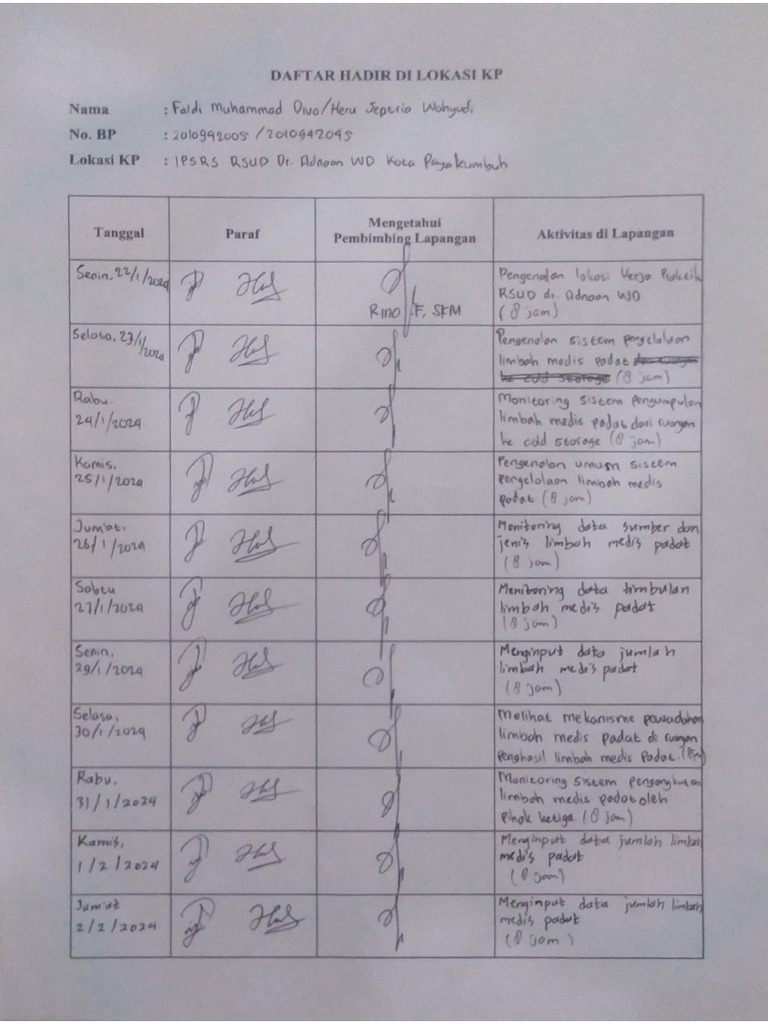 DAFTAR HADIR DI LOKASI KP
Nama : Faldi Muhammad Divo/Heru Septrio Wahyudi
No. BP : 2010942005 / 2010942045
Lokasi KP : IPSRS RSUD Dr. Adnaan WD Kota Payakumbuh
Tanggal
Paraf
Mengetahui
Pembimbing Lapangan
Aktivitas di Lapangan
Senin, 22/1/2024
Rino F, SKM
Pengenalan lokasi Kerja Praktik
RSUD dr. Adnaan WD
(8 jam)
Selasa, 23/1/2024
Pengenalan sistem pengelolaan
limbah medis padat
(8 jam)
Rabu,
24/1/2024
Monitoring sistem pengumpulan
limbah medis padat dari ruangan
ke cold storage (8 jam)
Kamis,
25/1/2024
Pengenalan umum sistem
pengelolaan limbah medis
padat (8 jam)
Jum'at,
26/1/2024
Monitoring data sumber dan
jenis limbah medis padat
(8 jam)
Sabtu
27/1/2024
Monitoring data timbulan
limbah medis padat
(8 jam)
Senin,
29/1/2024
Menginput data jumlah
limbah medis padat
(8 jam)
Selasa,
30/1/2024
Melihat mekanisme pewadahan
limbah medis padat di ruangan
penghasil limbah medis padat.
Rabu,
31/1/2024
Monitoring sistem pengangkutan
limbah medis padat oleh
pihak ketiga (8 jam)
Kamis,
1/2/2024
Menginput data jumlah limbah
medis padat
(8 jam)
Jum'at
2/2/2024
Menginput data jumlah limbah
medis padat
(8 jam)